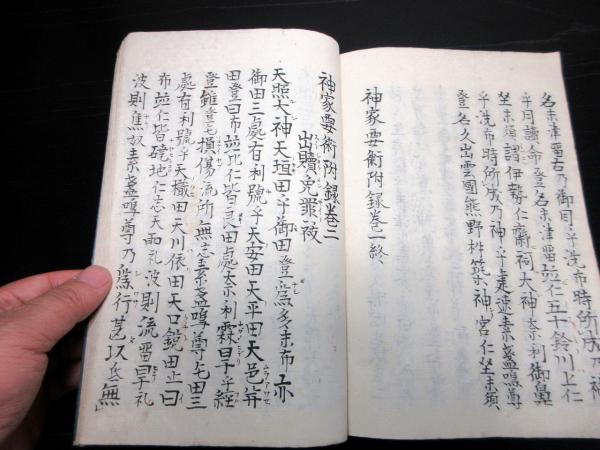 名未津留右乃御目乎洗布時所成乃神
乎月讀命登名未津留並仁五十鈴川上仁
坐未須謂伊勢仁齋祠大神奈利御鼻
乎洗布時所成乃神乎建速素盞嗚尊
登名久出雲國熊野杵築大神宮仁坐未須
神家要術附録巻一終
神家要術附録巻二
出贖免罪祓
天照大神天垣田乎御田登為多未布亦
御田三處有利號乎天安田天平田天邑并
田登曰布並比仁皆良田處奈利霖旱乎経
登雖毛損傷流所無志素盞嗚尊毛田三
處有利號乎天樴田天川依田天口鋭田止曰
布並仁皆磽地仁志天雨礼波則流留旱礼
波則焦奴素盞嗚尊乃為行甚以無